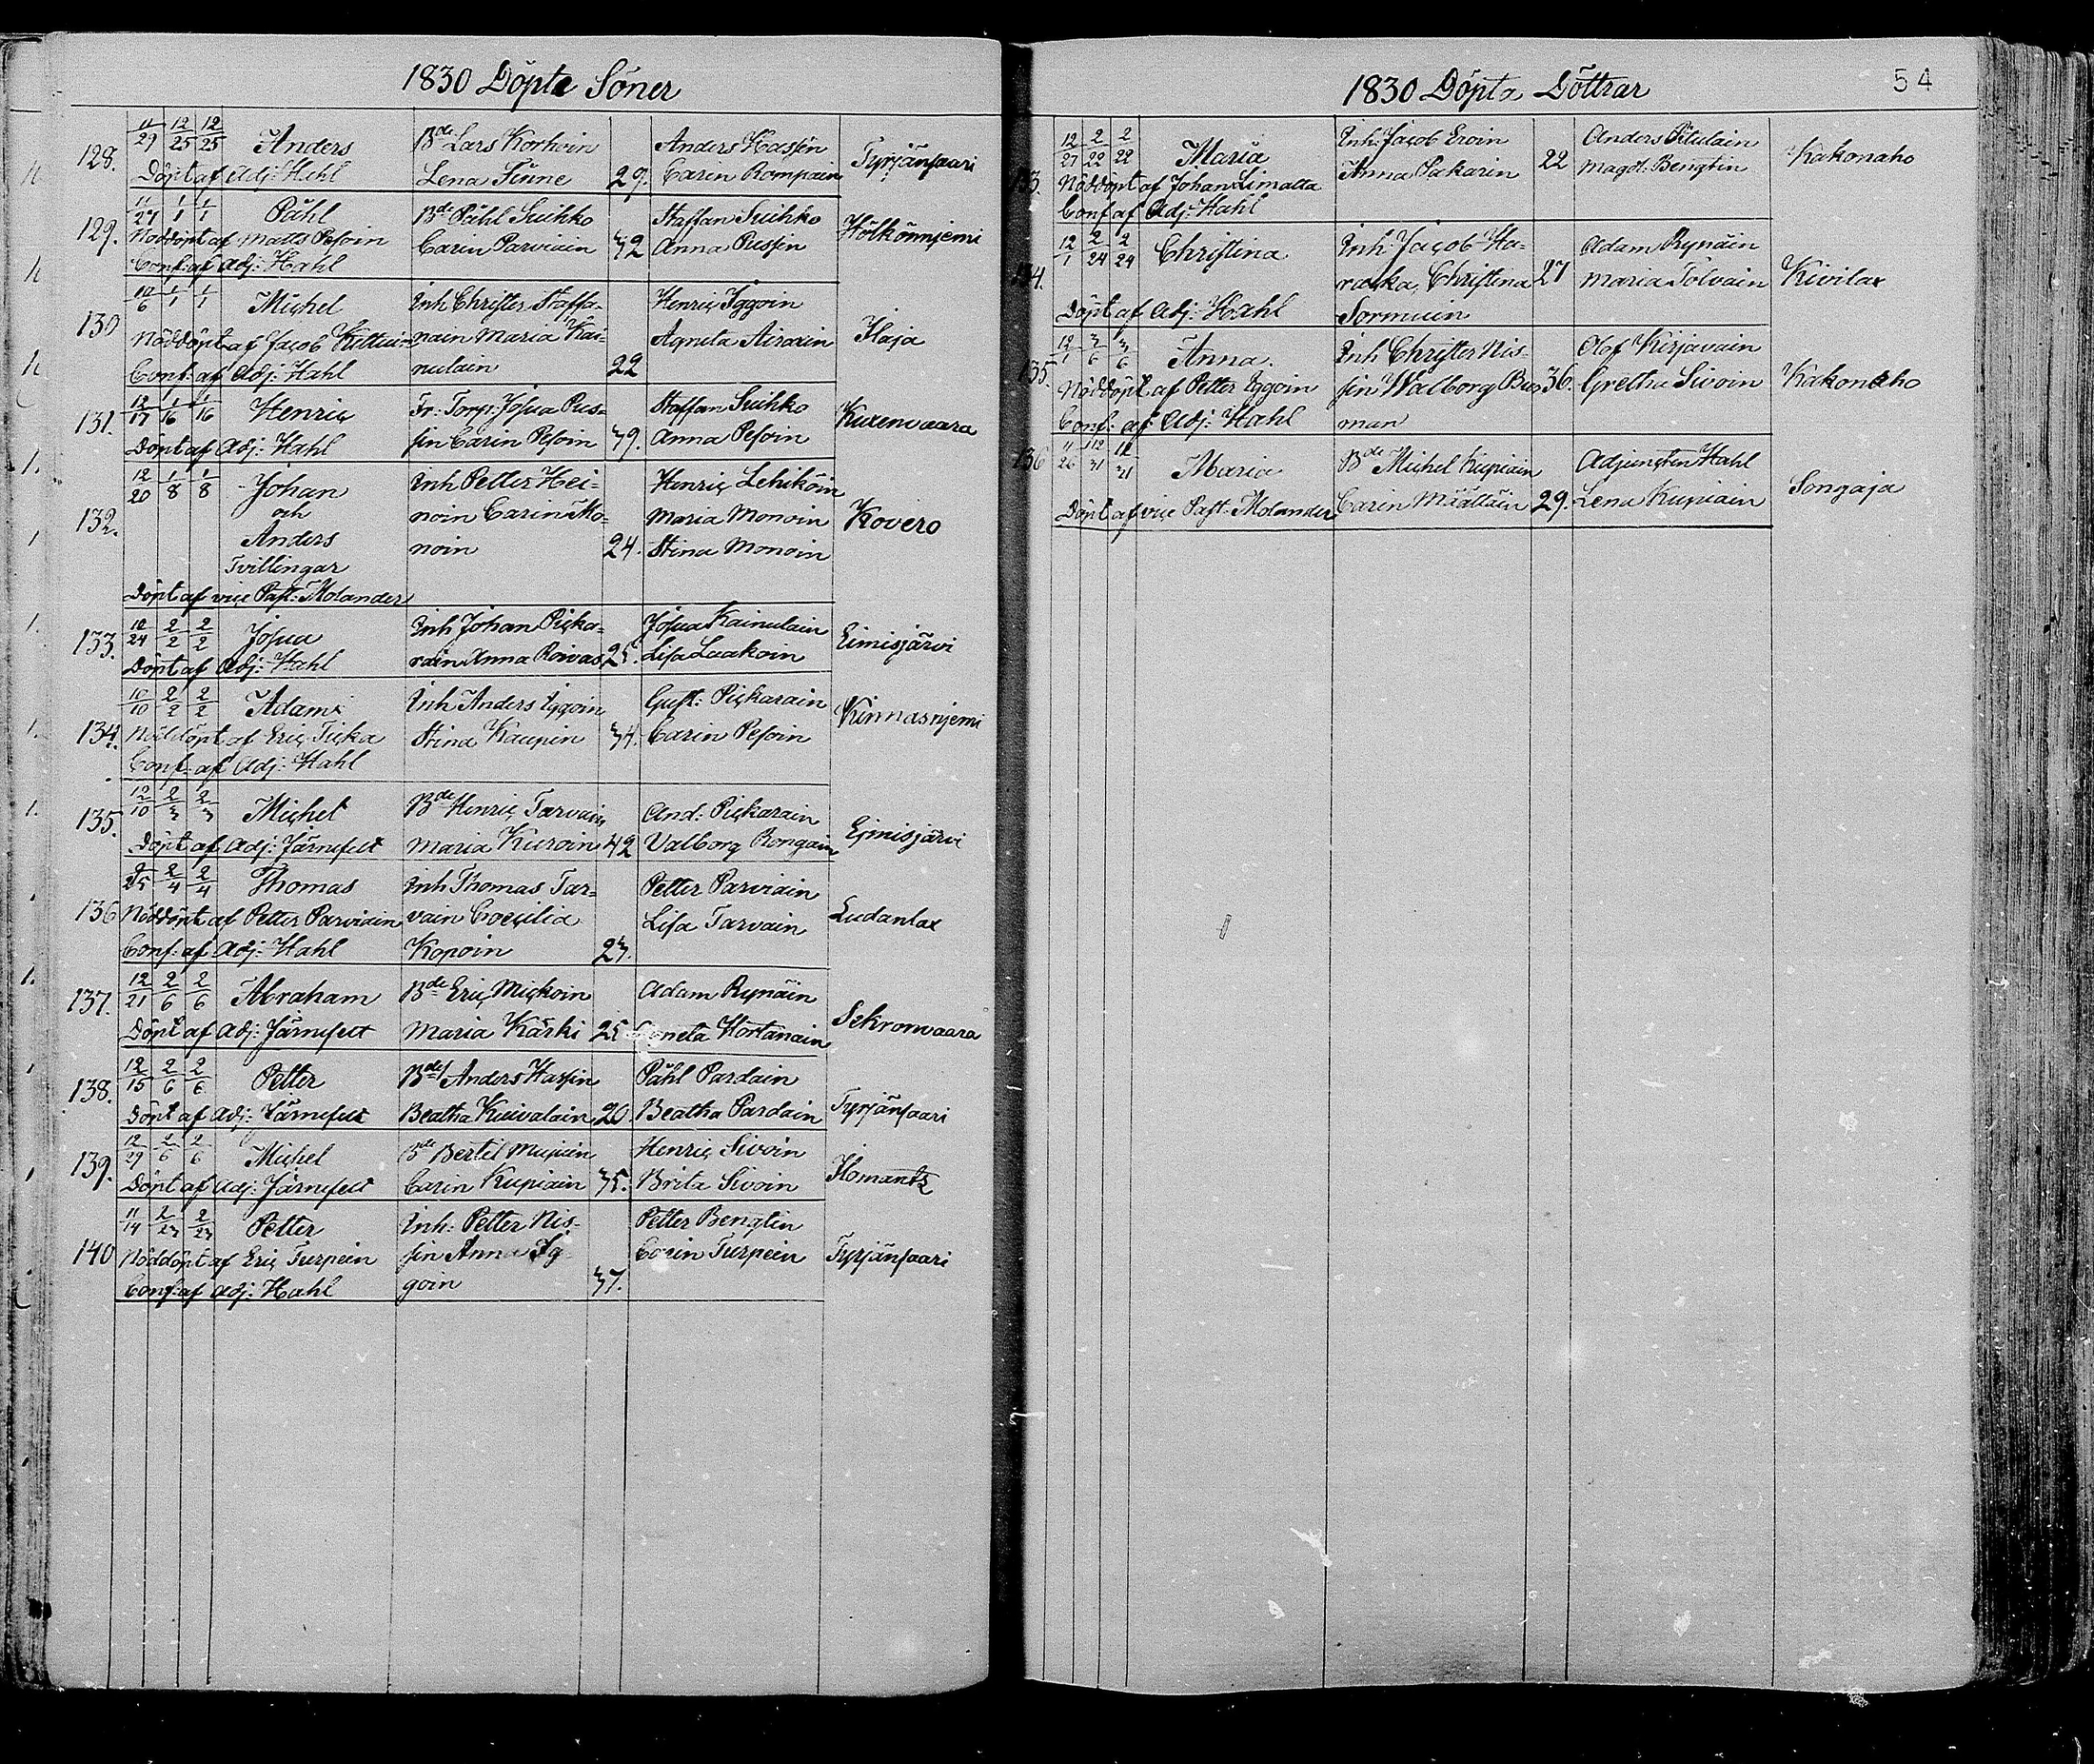 1830 Döpte Söner
128. 11/29 12/25 12/25 Anders Bde Lars Korhoin Anders Hassin Tyrjänsaari
Döpt af Adj: Hahl Lena Sinne 29. Carin Rompain
129. 11/27 1/1 1/1 Påhl Bde Påhl Suihko Staffan Suihko Hölkönnjemi
Nöddöpt af Matts Pesoin Carin Parviain 42 Anna Pussin
Conf: af Adj: Hahl
130 10/6 1/1 1/1 Michel Inh Christer Staffa= Henric Iggoin Ilaja
Nöddöpt af Jacob nain Maria Kai= Agneta Airaxin
Conf: af Adj: Hahl nulain 22
131. 12/17 1/16 1/16 Henric Fr: Torp: Josua Pus= Staffan Suihko Kuxenvaara
Döpt af Adj: Hahl sin Carin Pesoin 39. Anna Pesoin
132. 12/20 1/8 1/8 Johan Inh Petter Hei= Henric Lehikoin Kovero
och noin Carin Mo= Maria Monoin
Anders noin 24. Stina Monoin
Tvillingar
Döpt af vice Past: Molander
133. 12/24 2/2 2/2 Josua Inh Johan Picka= Josua Kainulain Eimisjärvi
Döpt af Adj: Hahl rain Anna Roivas 25. Lisa Laakoin
134. 10/10 2/2 2/2 Adam Inh Anders Iggoin Gust: Pickarain Kinnasnjemi
Nöddöpt af Eric Ticka Stina Kaupin 34. Carin Pesoin
Conf: af Adj: Hahl
135. 12/10 2/3 2/3 Michel Bde Henric Tarvain And: Pickarain Ejmisjärvi
Döpt af Adj: Järnefelt Maria Kuroin 42 Valborg Rongain
136 2/4 2/4 Thomas Inh Thomas Tar= Petter Parviain Ludanlax
Nöddöpt af Petter Parviain vain Coecilia Lisa Tarvain
Conf: af Adj: Hahl Kopoin 23.
137. 12/21 2/6 2/6 Abraham Bde Eric Mickoin Adam Rynäin Sskronvaara
Döpt af Adj: Järnefelt Maria Kärki 25 Agneta Hortanain
138. 12/15 2/6 2/6 Petter Bde Anders Hassin Påhl Pardain Tyrjänsaari
Döpt af Adj: Järnefelt Beatha Kuivalain 20. Beatha Pardain
139. 12/29 2/6 2/6 Michel Bde Bertil Mujuin Henric Sivoin Ilomantz
Döpt af Adj: Järnefelt Carin Kupiain 35. Brita Sivoin
140 11/14 2/23 2/23 Petter Inh: Petter Nis= Petter Bengtin Tyrjänsaari
Nöddöpt af Eric Turpein sin Anna Ig Carin Turpein
Conf: af Adj: Hahl goin 37.
1830 Döpta Döttrar 54
133. 12/27 2/22 2/22 Maria Inh: Jacob Eroin Anders Pitulain Kakonaho
Nöddöpt af Johan Limatta Anna Pakarin 22 Magd: Bengtin
Conf af Adj: Hahl
134. 12/1 2/24 2/24 Christina Inh Jacob Ha= Adam Rynäin Kivilax
racka, Christina 27 Maria Tolvain
Döpt af Adj: Hahl Sormuin
135. 12/1 3/6 3/6 Anna Inh Christer Nis= Olof Kirjavain Kakonaho
Nöddöpt af Petter Iggoin sin Walborg Bus 36. Gretha Sivoin
Conf: af Adj: Hahl man
136 11/26 12/31 12/31 Maria Bde Michel Kupiain Adjuncten Hahl Songaja
Döpt af vice Past: Molander Carin Määttäin 29. Lena Kupiain